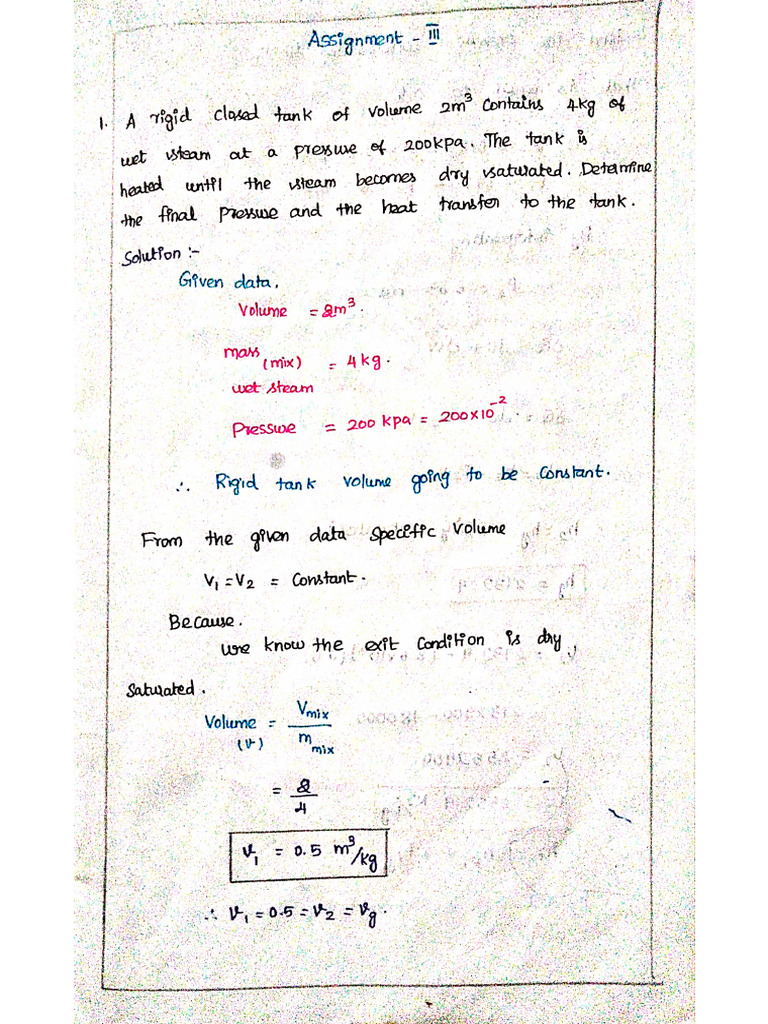 Assignment - III
1. A rigid closed tank of volume 2m³ contains 4kg of
wet steam at a pressure of 200kpa. The tank is
heated until the steam becomes dry saturated. Determine
the final pressure and the heat transfer to the tank.
Solution :-
Given data,
Volume = 2m³.
mass (mix) = 4 kg.
wet steam
Pressure = 200 kpa = 200×10⁻² .
∴ Rigid tank volume going to be constant.
From the given data specific volume
V₁ = V₂ = constant.
Because.
we know the exit condition is dry
saturated.
Volume (v) = Vmix / m mix
= 2/4
v₁ = 0.5 m³/kg
∴ v₁ = 0.5 = v₂ = vg.